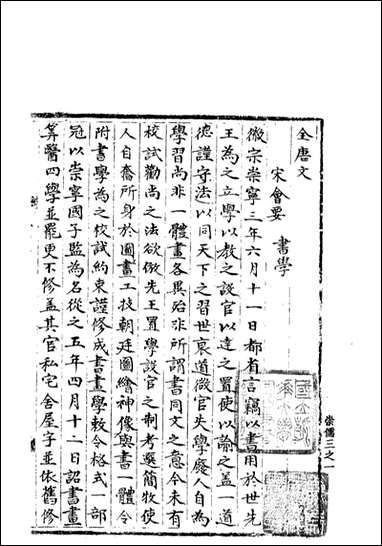 全唐文
宋會要 書學
徽宗崇寧三年六月十一日都省言竊以書用於世先
王為之立學以教之設官以達之置使以諭之蓋一道
德謹守法以同天下之習世衰道微官失學廢人自為
學習尚非一體畫各異殆非所謂書同文之意今未有
校試勸尚之法欲倣先王置學設官之制考選簡牧使
人自奮所身於圖畫工技朝廷圖繪神像與書一體令
附書學為之校試約束謹修成書畫學敕令格式一部
冠以崇寧國子監為名從之五年四月十二日詔書畫
筭醫四學並罷更不修蓋其官私宅舍屋字並依舊修
崇儒三之一